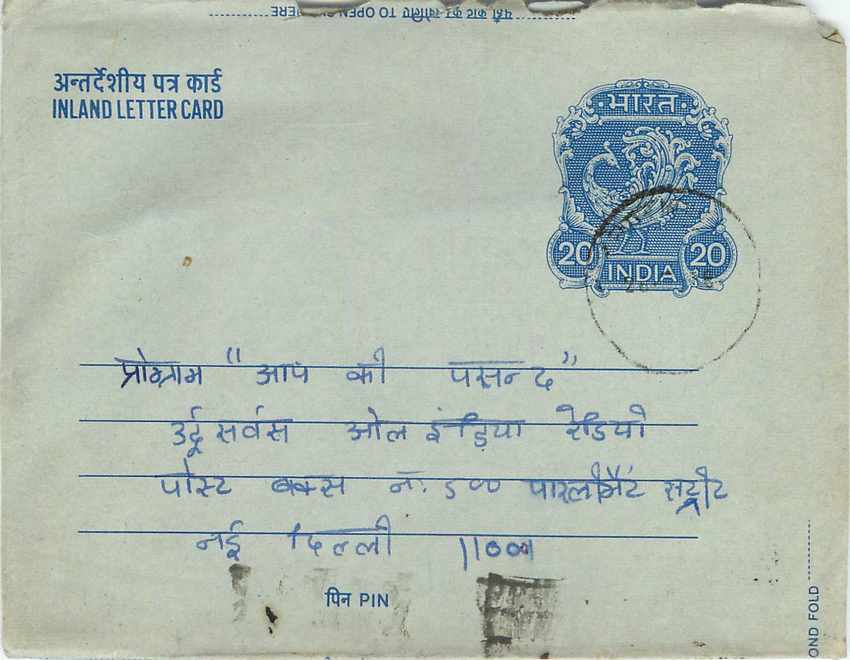 यहाँ काट कर खोलिए TO OPEN HERE
अन्तर्देशीय पत्र कार्ड
INLAND LETTER CARD
भारत
20 20
INDIA
प्रोग्राम "आप की पसन्द"
उर्दू सर्वस ओल इंड़िया रेडियो
पोस्ट बक्स नः 500 पारलीमैंट सट्रीट
नई दिल्ली 110001
पिन PIN
OND FOLD